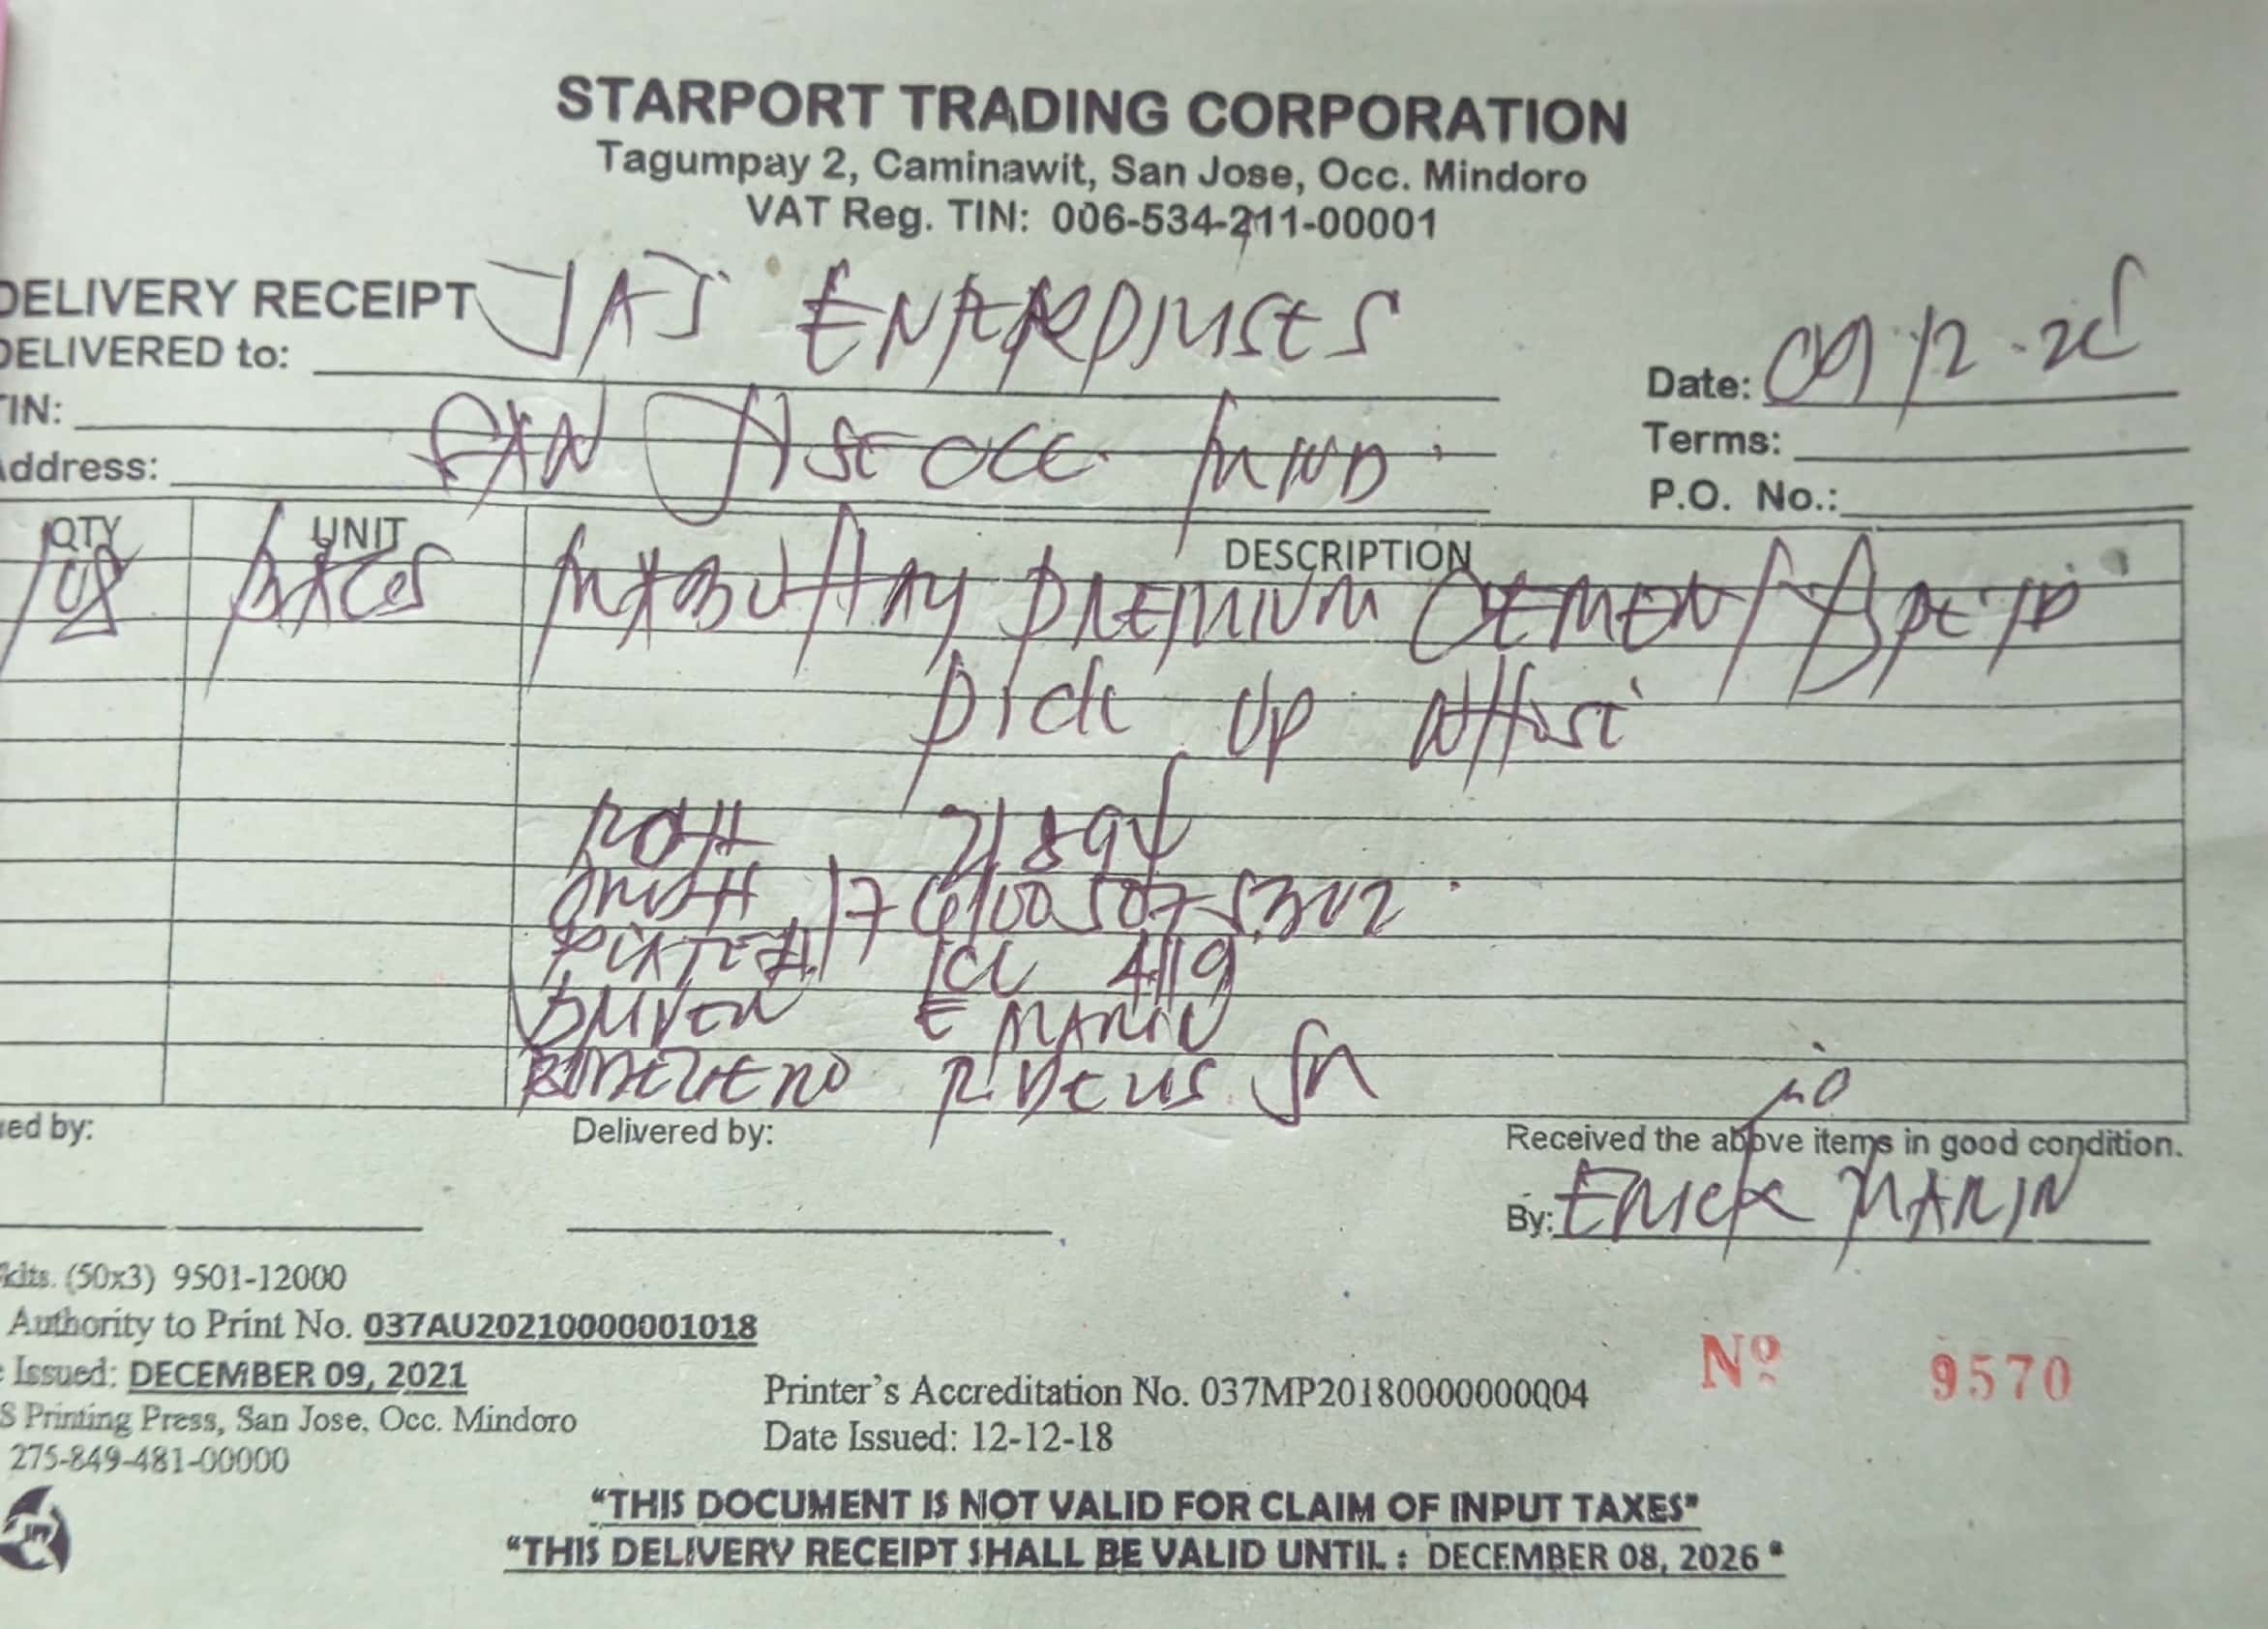 STARPORT TRADING CORPORATION
Tagumpay 2, Caminawit, San Jose, Occ. Mindoro
VAT Reg. TIN: 006-534-211-00001
DELIVERY RECEIPT
DELIVERED to: JAJ ENTERPRISES
Date: 09 12-25
TIN:
Terms:
Address: SAN JOSE OCC MIND.
P.O. No.:
QTY UNIT DESCRIPTION
PREMIUM CEMENT
PICK UP
PO# 21894
17610050875302
PLATE #
DRIVER E MARIN
ed by:
Delivered by:
Received the above items in good condition.
By: ERICK MARIN
kits. (50x3) 9501-12000
Authority to Print No. 037AU20210000001018
Issued: DECEMBER 09, 2021
Printer's Accreditation No. 037MP20180000000004
Nº 9570
S Printing Press, San Jose, Occ. Mindoro
Date Issued: 12-12-18
275-849-481-00000
"THIS DOCUMENT IS NOT VALID FOR CLAIM OF INPUT TAXES"
"THIS DELIVERY RECEIPT SHALL BE VALID UNTIL : DECEMBER 08, 2026"